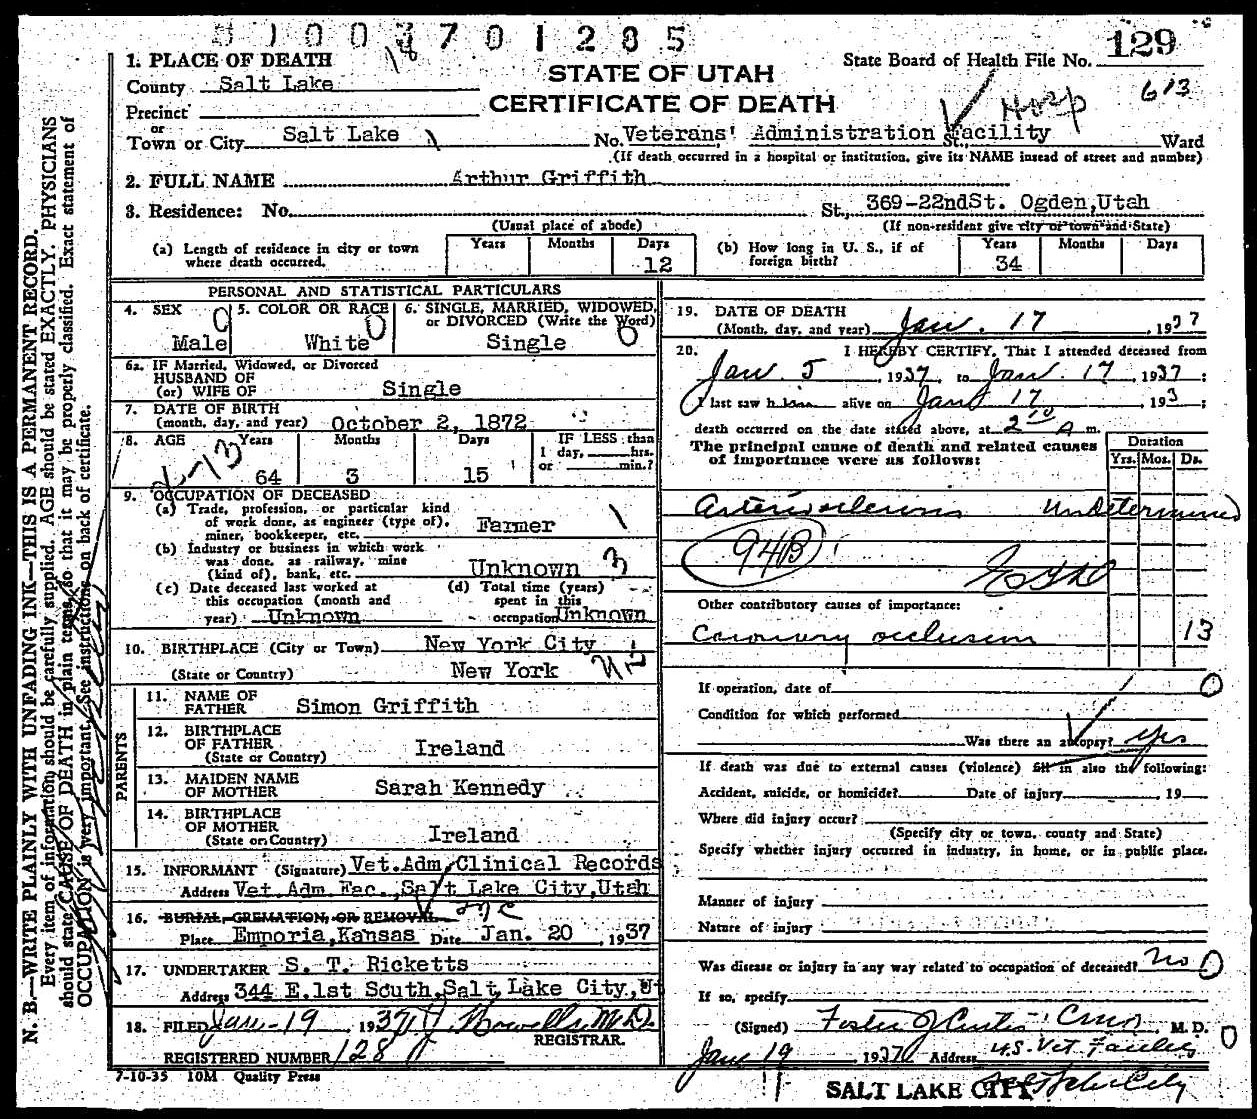 N1003701285
18
129
1. PLACE OF DEATH
County Salt Lake
Precinct
or
Town or City Salt Lake 1
STATE OF UTAH
CERTIFICATE OF DEATH
State Board of Health File No.
Hosp 613
No. Veterans' Administration Facility St., Ward
(If death occurred in a hospital or institution, give its NAME instead of street and number)
2. FULL NAME Arthur Griffith
3. Residence: No. St., 369-22ndSt. Ogden,Utah
(Usual place of abode) (If non-resident give city or town and State)
(a) Length of residence in city or town where death occurred. Years Months Days 12
(b) How long in U. S., if of foreign birth? Years 34 Months Days
PERSONAL AND STATISTICAL PARTICULARS
4. SEX Male 0
5. COLOR OR RACE White 0
6. SINGLE, MARRIED, WIDOWED, or DIVORCED (Write the Word) Single 0
6a. IF Married, Widowed, or Divorced
HUSBAND OF
(or) WIFE OF Single
7. DATE OF BIRTH
(month, day, and year) October 2, 1872
8. AGE Years 64 Months 3 Days 15
IF LESS than
1 day, hrs.
or min.?
9. OCCUPATION OF DECEASED
(a) Trade, profession, or particular kind
of work done, as engineer (type of),
miner, bookkeeper, etc. Farmer 1
(b) Industry or business in which work
was done, as railway, mine
(kind of), bank, etc. Unknown 3
(c) Date deceased last worked at
this occupation (month and
year) Unknown
(d) Total time (years)
spent in this
occupation Unknown
10. BIRTHPLACE (City or Town) New York City
(State or Country) New York
PARENTS
11. NAME OF
FATHER Simon Griffith
12. BIRTHPLACE
OF FATHER
(State or Country) Ireland
13. MAIDEN NAME
OF MOTHER Sarah Kennedy
14. BIRTHPLACE
OF MOTHER
(State or Country) Ireland
15. INFORMANT (Signature) Vet.Adm Clinical Records
Address Vet Adm Fac., Salt Lake City,Utah
16. BURIAL, CREMATION, OR REMOVAL
Place Emporia,Kansas Date Jan. 20 , 1937
17. UNDERTAKER S. T. Ricketts
Address 344 E.1st South,Salt Lake City,Ut
18. FILED Jan-19 , 1937 Howells M.D.
REGISTRAR.
REGISTERED NUMBER 128
7-10-35 10M Quality Press
19. DATE OF DEATH
(Month, day, and year) Jan. 17 , 1937
20. I HEREBY CERTIFY, That I attended deceased from
Jan 5 , 1937 to Jan. 17 , 1937 ;
I last saw him alive on Jan 17 , 193 ;
death occurred on the date stated above, at 2 10 A m.
The principal cause of death and related causes
of importance were as follows:
Duration
Yrs. Mos. Ds.
Arteriosclerosis Undetermined
94B
Other contributory causes of importance:
Coronary occlusion 13
If operation, date of 0
Condition for which performed
Was there an autopsy? yes
If death was due to external causes (violence) fill in also the following:
Accident, suicide, or homicide? Date of injury , 19
Where did injury occur?
(Specify city or town, county and State)
Specify whether injury occurred in industry, in home, or in public place.
Manner of injury
Nature of injury
Was disease or injury in any way related to occupation of deceased? No 0
If so, specify
(Signed) Foster J Curtis , M. D. 0
Jan 19 , 1937 Address U.S. Vet. Facility
SALT LAKE CITY Salt Lake City
N. B.—WRITE PLAINLY WITH UNFADING INK—THIS IS A PERMANENT RECORD.
Every item of information should be carefully supplied. AGE should be stated EXACTLY. PHYSICIANS
should state CAUSE OF DEATH in plain terms, so that it may be properly classified. Exact statement of
OCCUPATION is very important. See instructions on back of certificate.